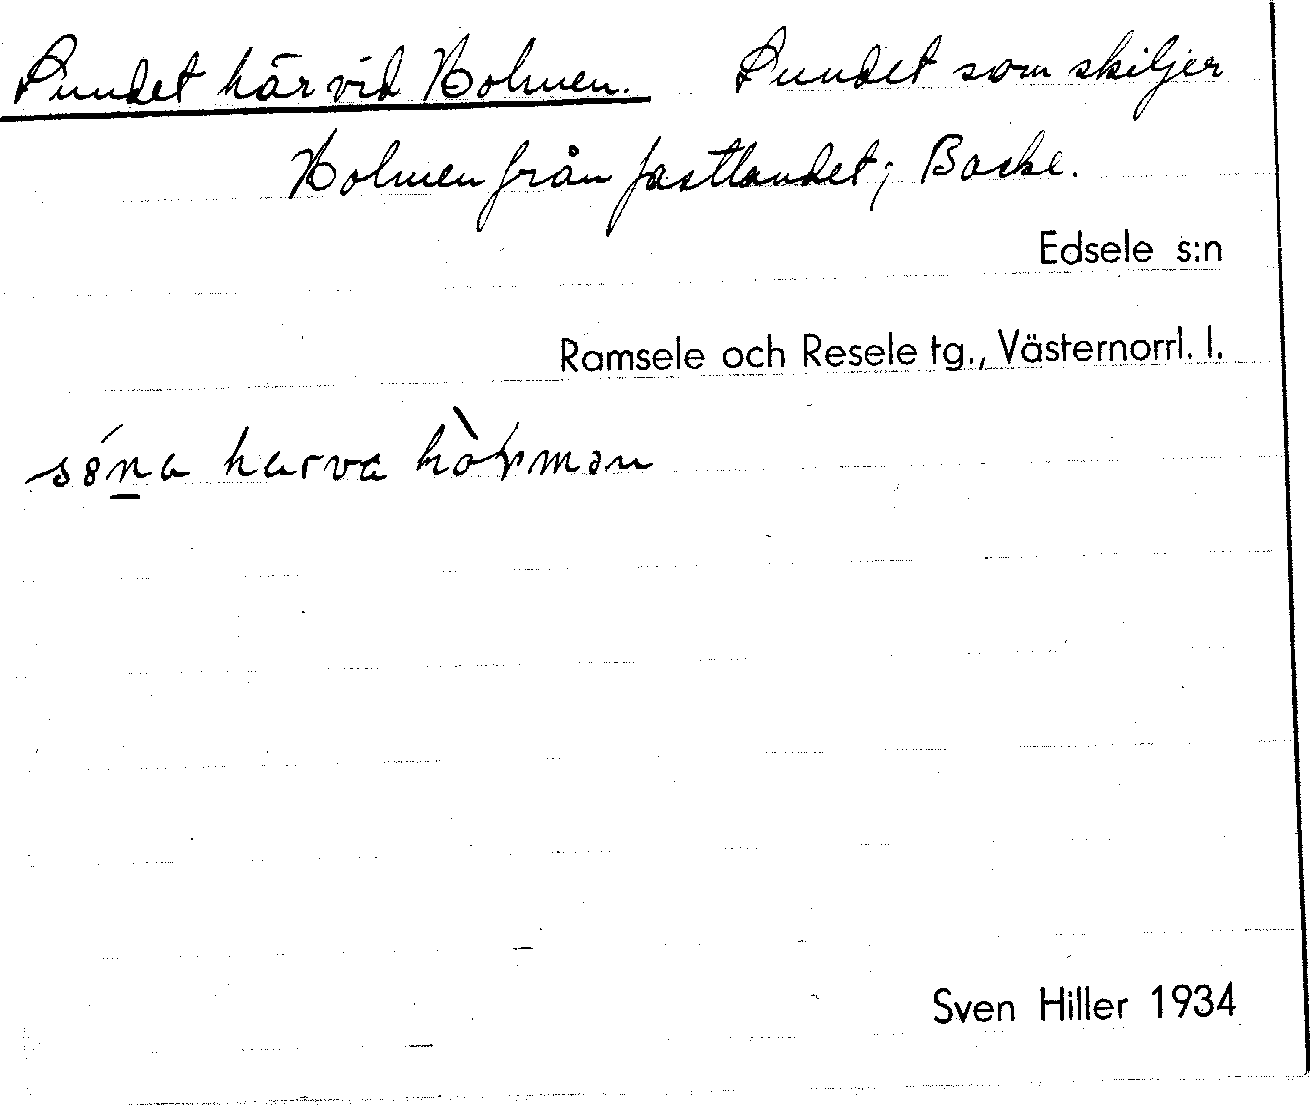 Sundet här vid Holmen. Sundet som skiljer
Holmen från fastlandet; Backe.
Edsele s:n
Ramsele och Resele tg., Västernorrl. l.
harva
Sven Hiller 1934